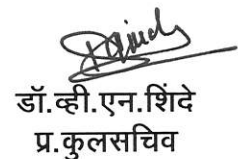 डॉ.व्ही.एन.शिंदे
प्र.कुलसचिव